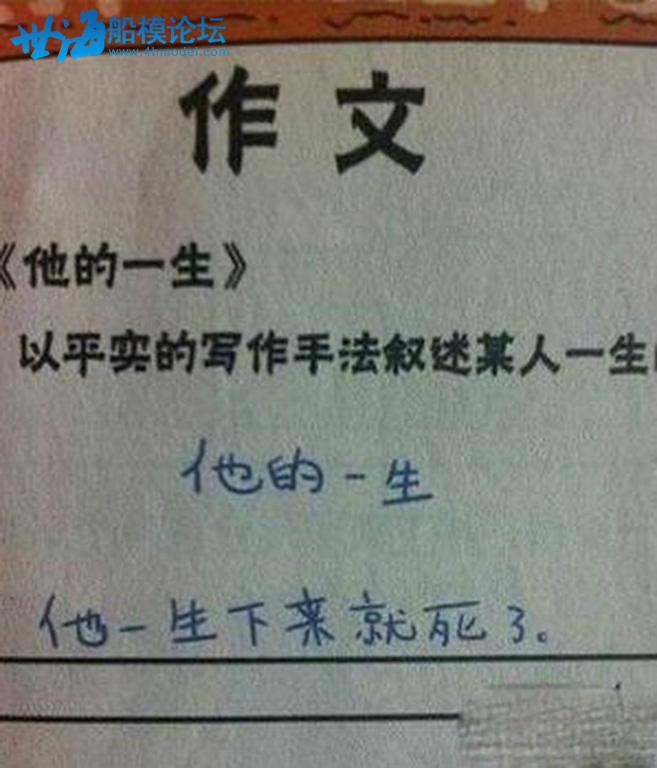 世海船模论坛
www.4hmodel.com
作文
《他的一生》
以平实的写作手法叙述某人一生
他的一生
他一生下来就死了。